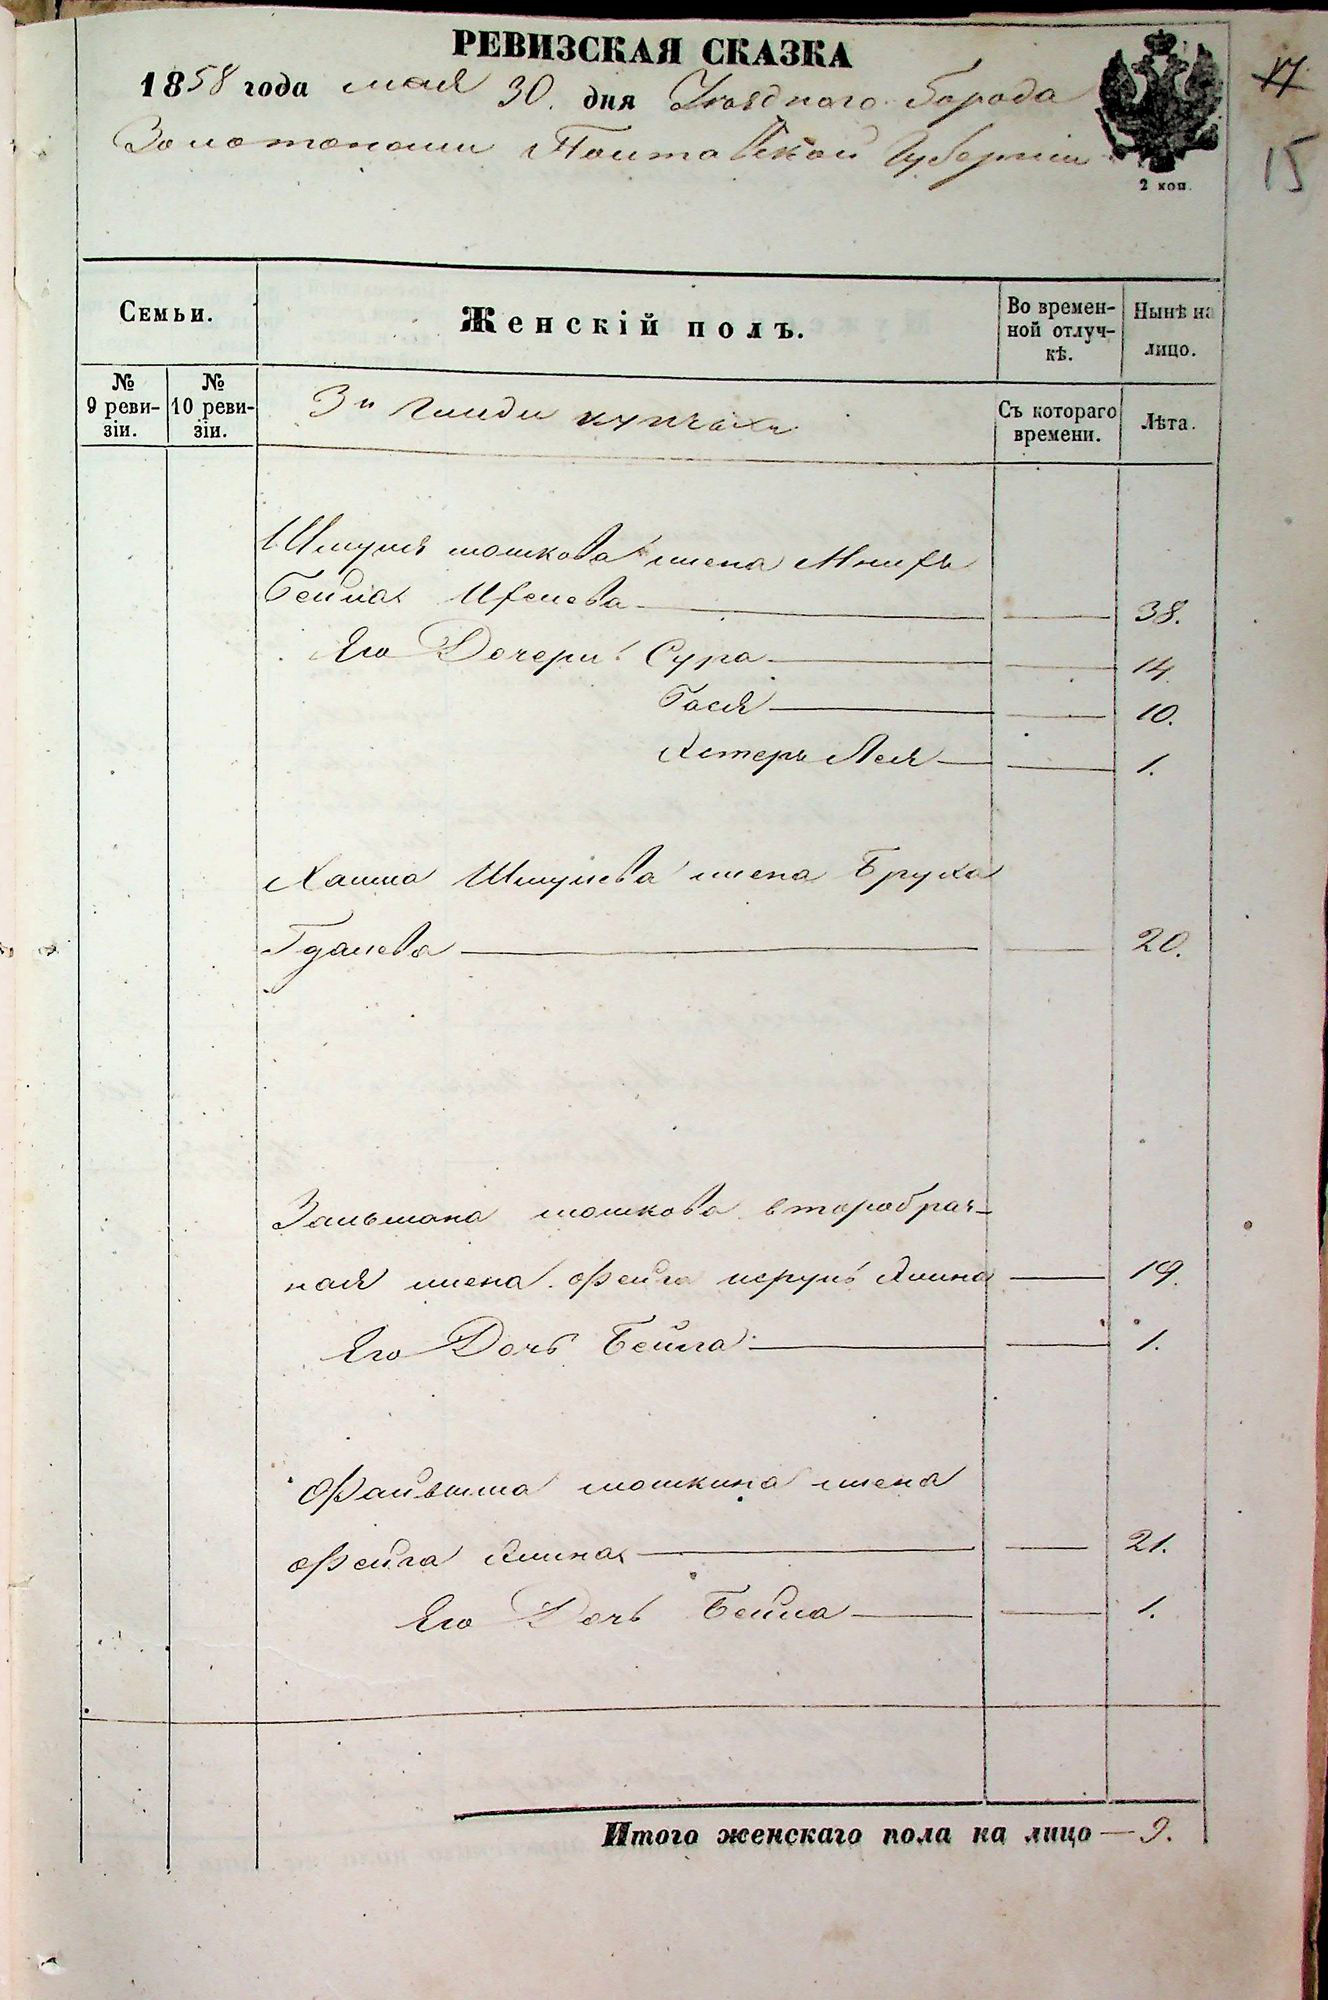 РЕВИЗСКАЯ СКАЗКА
1858 года мая 30. дня Уезднаго Города
Золотоноши Полтавской Губерніи
2 коп.
17
15
Семьи.
Женскій полъ.
Во времен-
ной отлуч-
кѣ.
Нынѣ на
лицо.
№
9 реви-
зіи.
№
10 реви-
зіи.
3й Гилди
Съ котораго
времени.
Лѣта.
Шмуля мошкова жена
Бейла 38.
Его Дочери: Сура 14.
Бася 10.
Естеръ Лея 1.
Хаима Шмулева жена Бруха
Гдалева 20.
Зальмана мошкова второбрач-
ная жена Фейга 19.
Его Дочь Бейла 1.
Файвиша мошкина жена
Фейга 21.
Его Дочь Бейла 1.
Итого женскаго пола на лицо — 9.